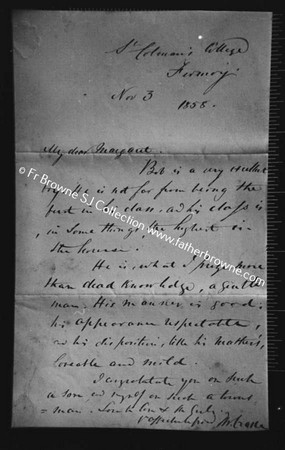 St Colman's College
Fermoy
Nov 3
1858.
My dear Margaret
Bob is a very excellent
boy. He is not far from being the
first in his class, and his class is
, in some things, the highest in
the house.
He is, what I prize more
than dead knowledge, a gentle
man. His manner is good;
his appearance respectable,
and his disposition, like his mother's,
loveable and mild.
I congratulate you on such
a son and myself on such a
= man. Love to
© Fr Browne S.J. Collection, Irish Picture Library